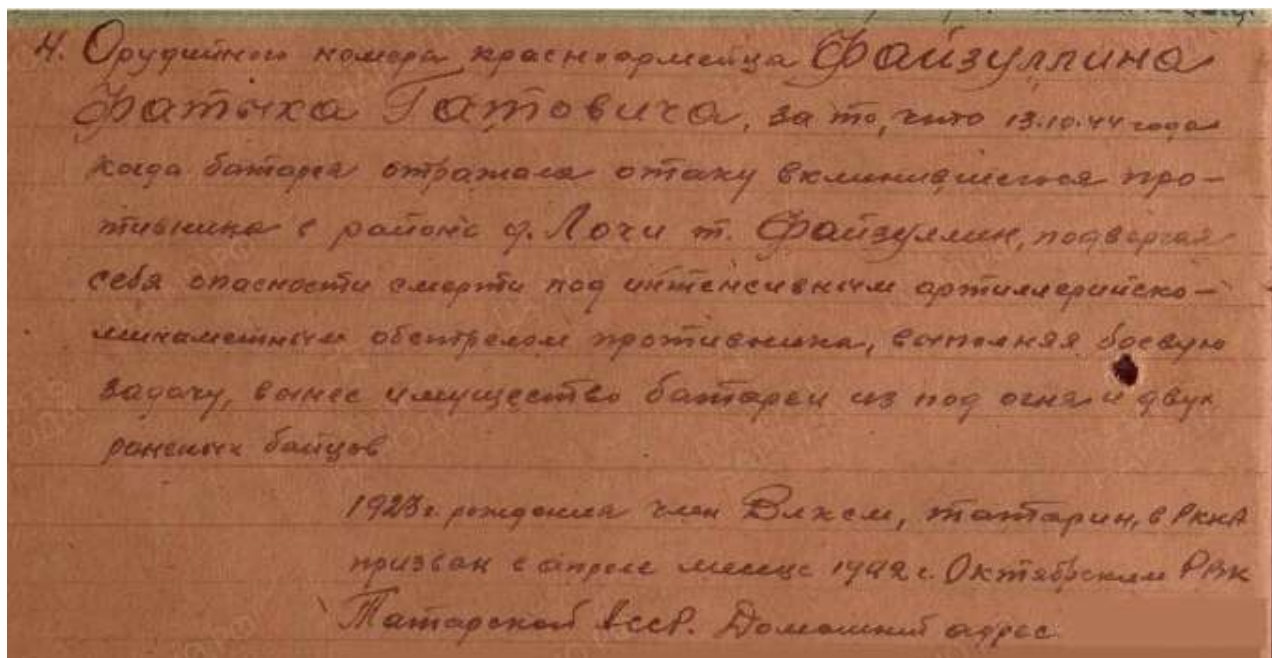 4. Орудийного номера красноармейца Файзуллина
Фатыха Гатовича, за то, что 13.10.44 года
когда батарея отражала атаку вклинившегося про-
тивника в районе д. Лочи т. Файзуллин, подвергая
себя опасности смерти под интенсивным артиллерийско-
минаметным обстрелом противника, выполняя боевую
задачу, вынес имущество батареи из под огня и двух
раненых байцов
1923 г. рождения член Влксм, татарин, в РККА
призван в апреле месяце 1942 г. Октябрьским РВК
Татарской АССР. Домашний адрес